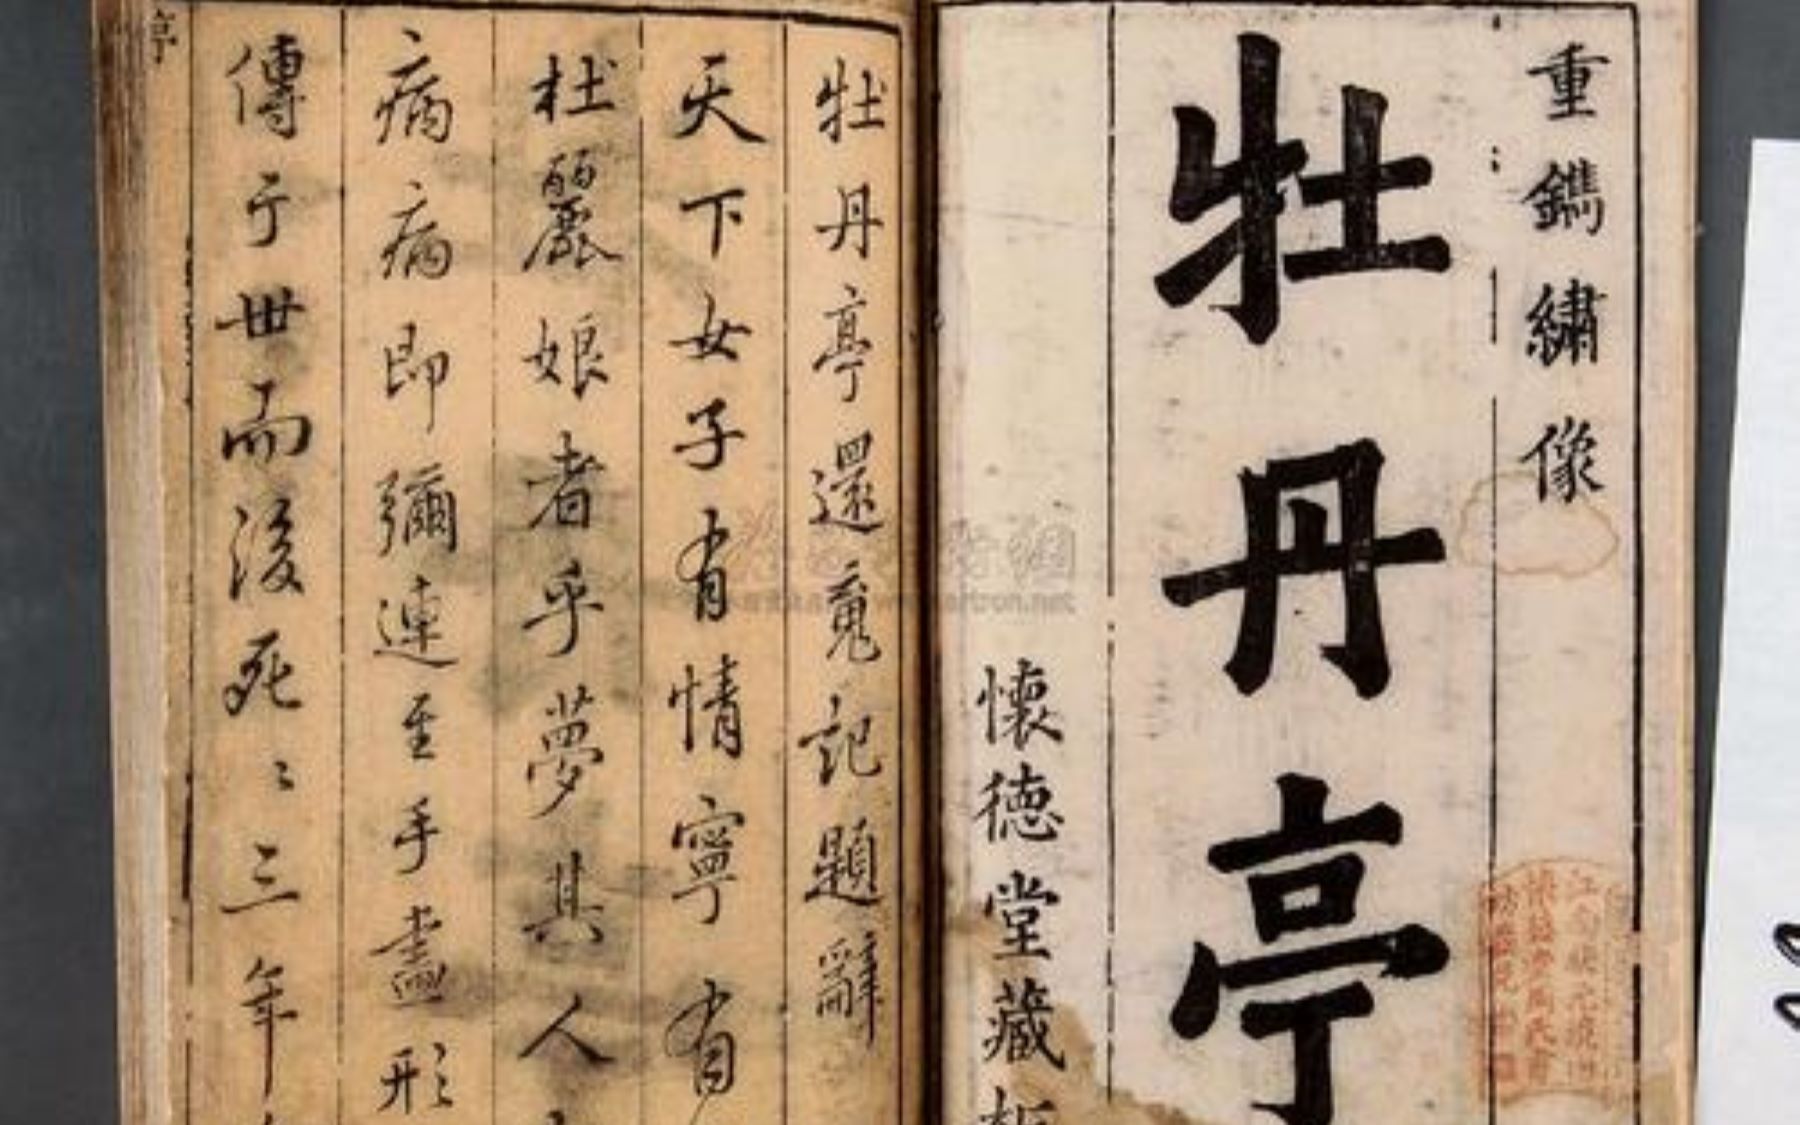 重鐫繡像
牡丹亭
懷德堂藏板
牡丹亭還魂記題辭
天下女子有情寧有
杜麗娘者乎夢其人
病病即彌連至手畫形
傳于世而後死〻三年
亭